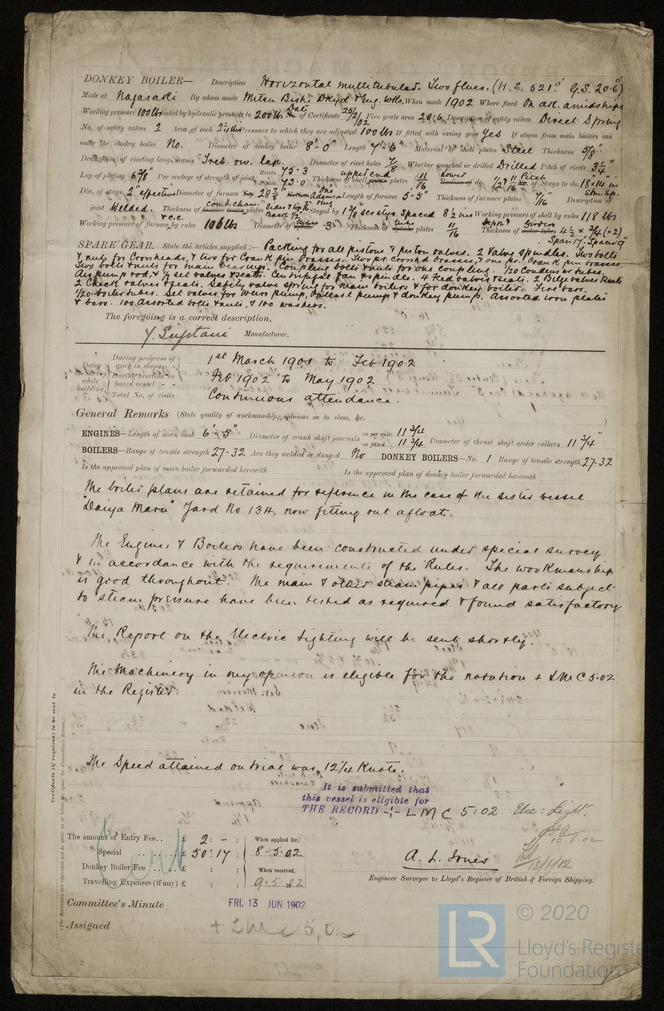 DONKEY BOILER— Description Horizontal multitubular. Two flues. (H.S. 521□' G.S. 20.6□')
Made at Nagasaki By whom made Mitsu Bishi Dkyd & Eng. Wks. When made 1902 Where fixed On dk. amidships
Working pressure 100 lbs tested by hydraulic pressure to 200 lbs Date of Certificate 25/2/02 Fire grate area 20.6 Description of safety valves Direct Spring
No. of safety valves 2 Area of each Pressure to which they are adjusted 100 lbs If fitted with easing gear Yes If steam from main boilers can
enter the donkey boiler No. Diameter of donkey boiler 8'-0" Length 7'-6" Material of shell plates Steel Thickness 5/8"
Description of riveting long. seams Treb. riv. lap. Diameter of rivet holes 7/8 Whether punched or drilled Drilled Pitch of rivets 3 1/4"
Lap of plating 6 7/8 Per centage of strength of joint Rivets 75.3 Plates 73.0 Thickness of plates 11/16
Dia. of stays 2" effective Diameter of furnace Length of furnace 5'-5" Thickness of furnace plates 7/16 Description of
joint Welded. Thickness of comb. cham. plates Stayed by 1 1/8 screw stays Spaced 8 1/2 ins Working pressure of shell by rules 118 lbs
Working pressure of furnace by rules 106 lbs Diameter of 3" Thickness of plates 11/16 Thickness of 4 1/2 × 3/4 (×2)
Span 17". Spaces 9
SPARE GEAR. State the articles supplied:— Packing for all pistons & piston valves. 2 Valve spindles. Two bolts
& nuts for Crossheads, & two for Crank pin brasses. Two prs. crosshd brasses, & one pr. Crank pin brasses.
Two bolts & nuts for main bearings. Coupling bolts & nuts for one coupling. 1/20 Condenser tubes.
Air pump rod, & 1/2 set valves & seats. Centrifugal fan & spindle. 4 Feed valves & seats. 2 Bilge valves & seats
2 Check valves & seats. Safety valve spring for main boilers & for donkey boiler. Fire bars.
1/20 boiler tubes. Set valves for Weirs pump, Ballast pump & donkey pump. Assorted iron plates
& bars. 100 Assorted bolts & nuts, & 100 washers.
The foregoing is a correct description,
Manufacturer.
Dates of Survey while building
During progress of work in shops— 1st March 1901 to Feb 1902
During erection on board vessel— Feb 1902 to May 1902
Total No. of visits Continuous attendance.
General Remarks (State quality of workmanship, opinions as to class, &c.
ENGINES—Length of stern bush 6'-5" Diameter of crank shaft journals as per rule 11 3/4 as fitted 11 3/4 Diameter of thrust shaft under collars 11 3/4"
BOILERS—Range of tensile strength 27-32 Are they welded or flanged No DONKEY BOILERS—No. 1 Range of tensile strength 27-32
Is the approved plan of main boiler forwarded herewith Is the approved plan of donkey boiler forwarded herewith
The boiler plans are retained for reference in the case of the sister vessel
"Daiya Maru" Yard No 134, now fitting out afloat.
The Engines & Boilers have been constructed under special survey
& in accordance with the requirements of the Rules. The workmanship
is good throughout. The main & other steam pipes & all parts subject
to steam pressure have been tested as required & found satisfactory
The Report on the Electric Lighting will be sent shortly.
The Machinery in my opinion is eligible for the notation + LMC 5.02
in the Register
The Speed attained on trial was 12 1/4 Knots.
It is submitted that
this vessel is eligible for
THE RECORD + LMC 5.02 Elec: Light.
The amount of Entry Fee .. £ 2 : - : When applied for,
Special .. .. £ 50 : 17 : 8.5.02
Donkey Boiler Fee .. £ : : When received,
Travelling Expenses (if any) £ : : 9.5.02
A. L. Jones
Engineer Surveyor to Lloyd's Register of British & Foreign Shipping.
Committee's Minute FRI. 13 JUN 1902
Assigned + LMC 5,02
Certificate (if required) to be sent to
LR © 2020
Lloyd's Register
Foundation